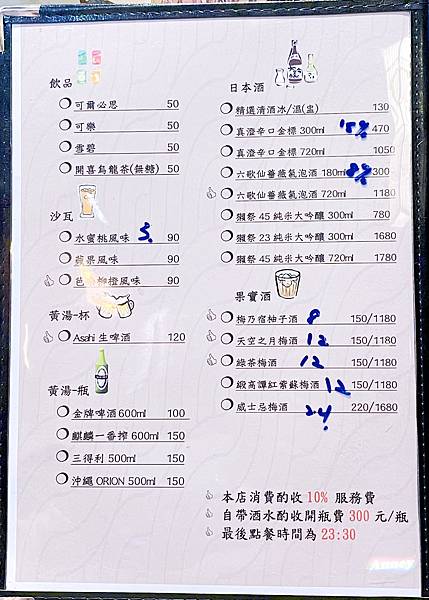 飲品
可爾必思 50
可樂 50
雪碧 50
開喜烏龍茶(無糖) 50
沙瓦
水蜜桃風味 5. 90
蘋果風味 90
芭樂柳橙風味 90
黃湯-杯
Asahi 生啤酒 120
黃湯-瓶
金牌啤酒 600ml 100
麒麟一番搾 600ml 150
三得利 500ml 150
沖繩 ORION 500ml 150
日本酒
精選清酒冰/溫(壺) 130
真澄辛口金標 300ml 15% 470
真澄辛口金標 720ml 1050
六歌仙薔薇氣泡酒 180ml 8% 300
六歌仙薔薇氣泡酒 720ml 1180
獺祭 45 純米大吟釀 300ml 780
獺祭 23 純米大吟釀 300ml 1680
獺祭 45 純米大吟釀 720ml 1780
果實酒
梅乃宿柚子酒 8 150/1180
天空之月梅酒 12 150/1180
綠茶梅酒 12 150/1180
緞高譚紅紫蘇梅酒 12 150/1180
威士忌梅酒 24! 220/1680
本店消費酌收 10% 服務費
自帶酒水酌收開瓶費 300 元/瓶
最後點餐時間為 23:30
Anney